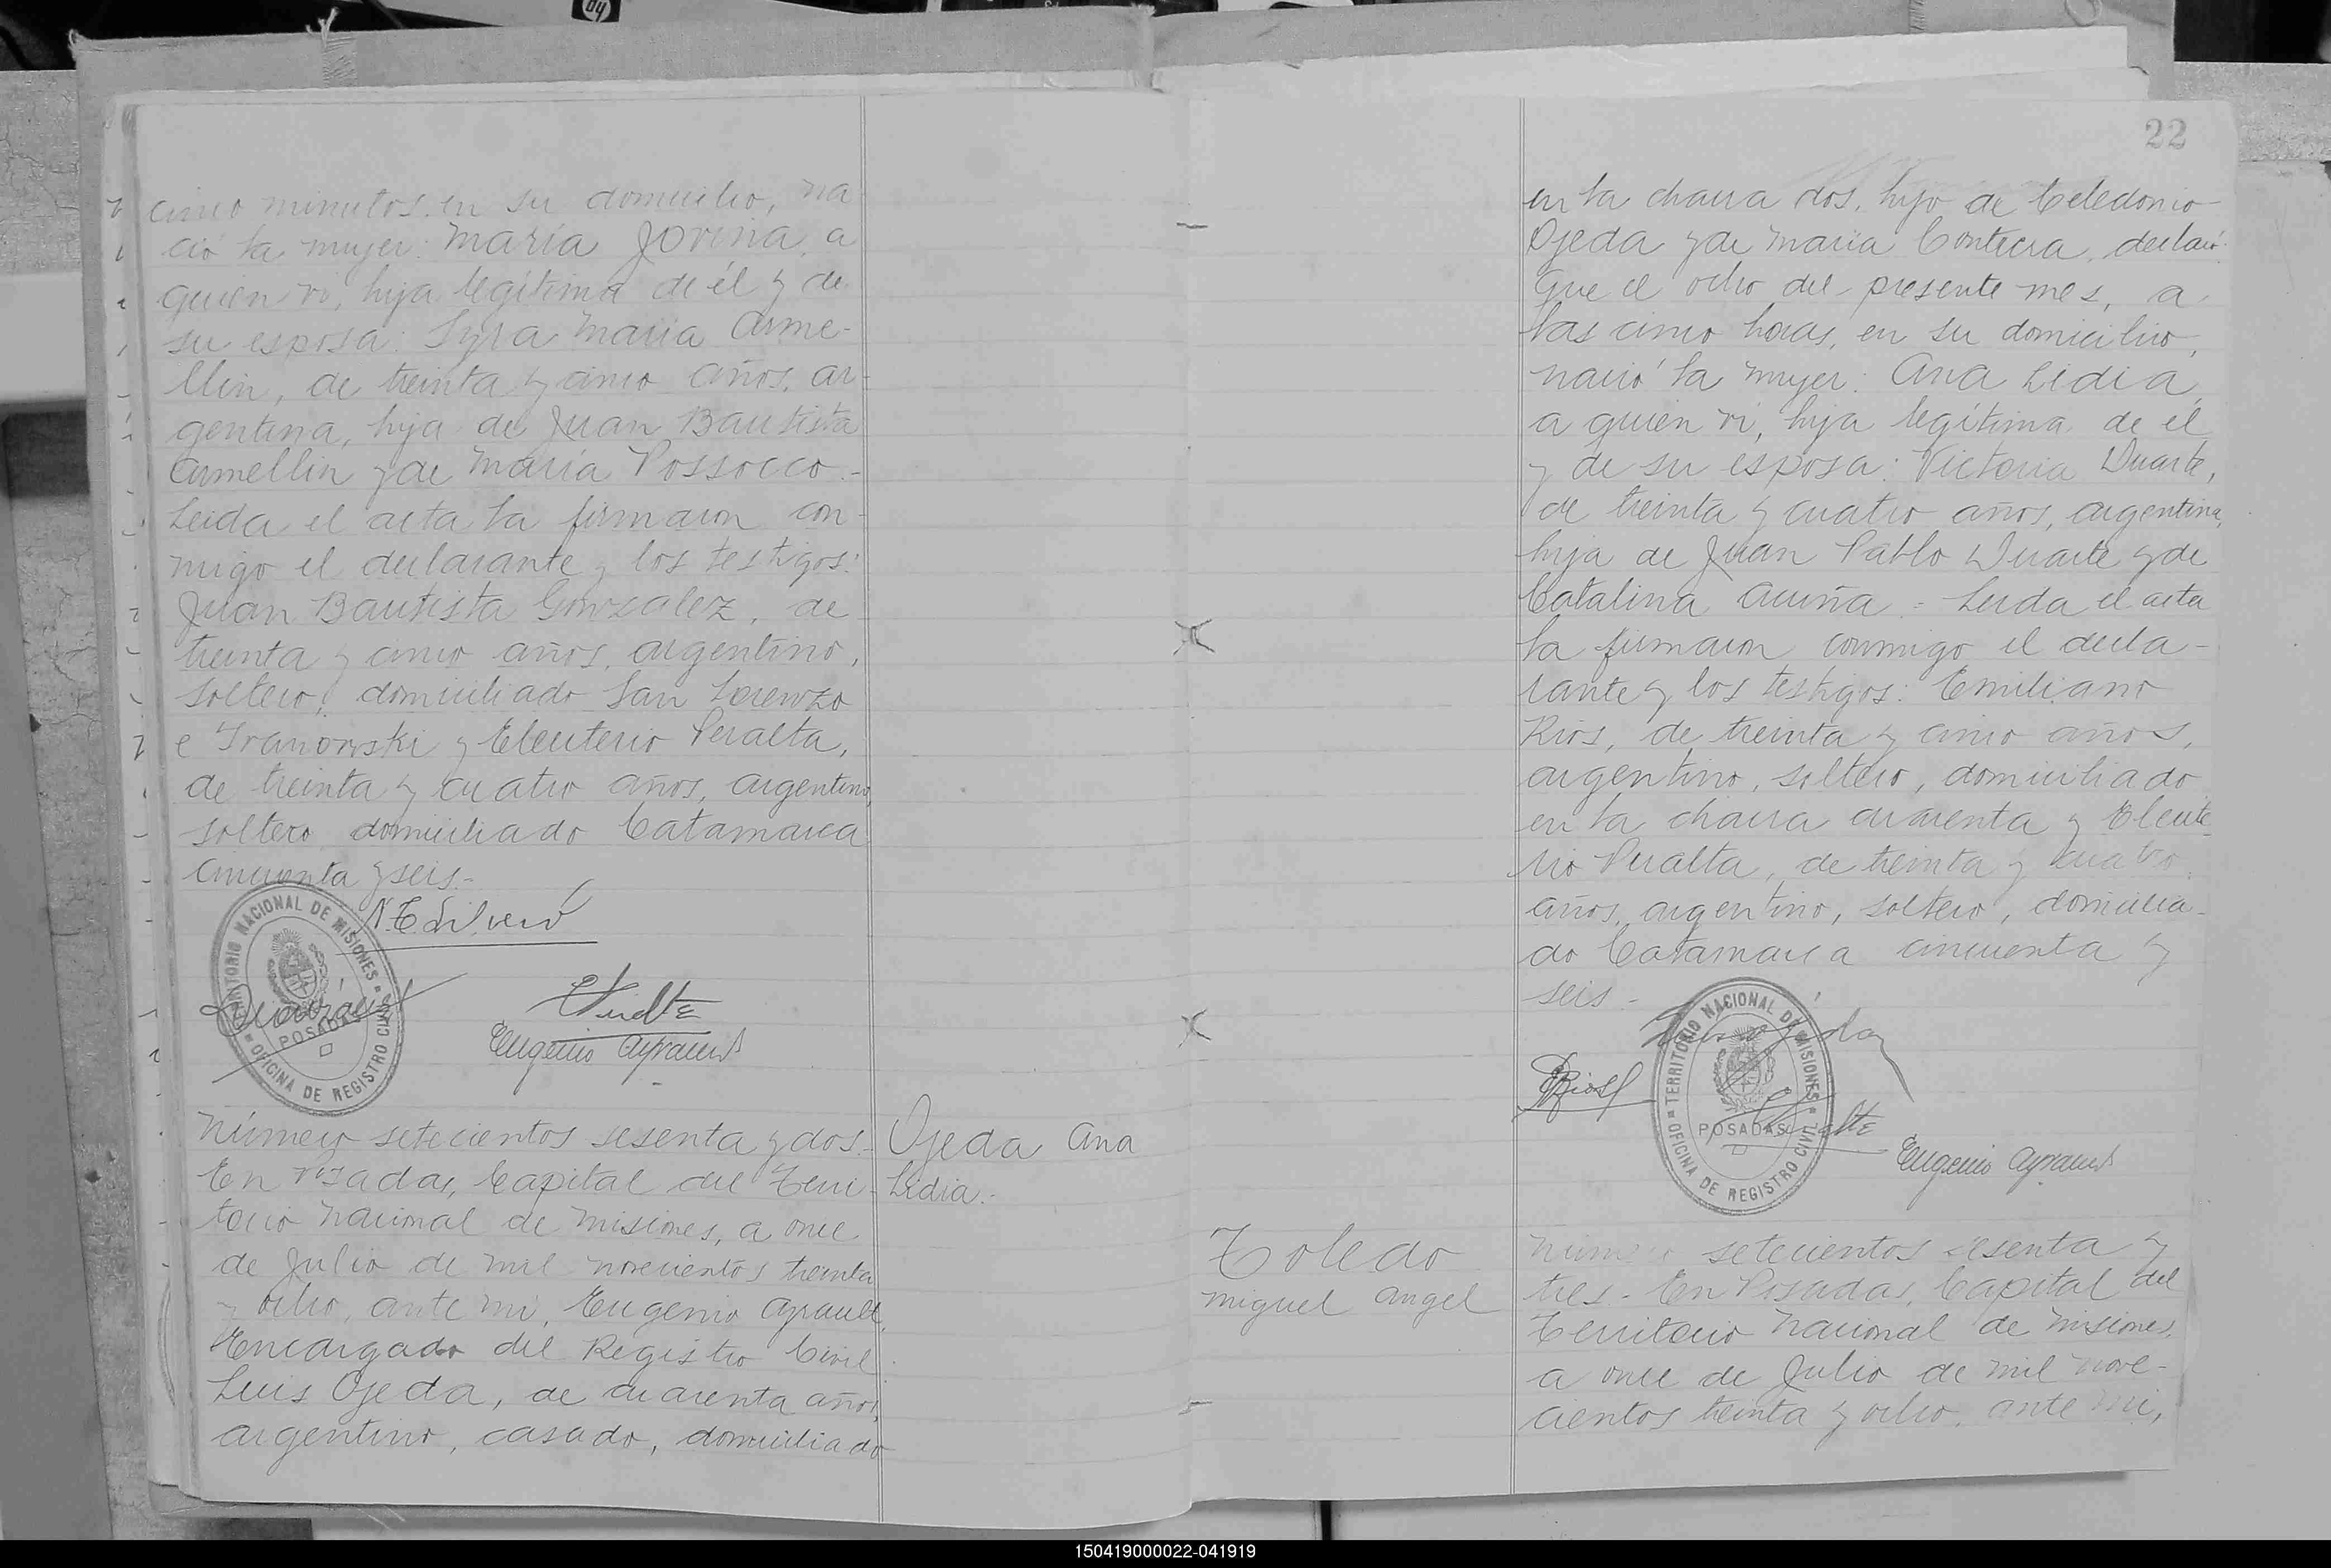 cinco minutos en su domicilio, na
ció la mujer: María Jovina, a
quien vi, hija legítima de él y de
su esposa: Syra María Arme-
llin, de treinta y cinco años, ar-
gentina, hija de Juan Bautista
Armellin y de María Possocco.-
Leida el acta la firmaron con-
migo el declarante y los testigos:
Juan Bautista Gonzalez, de
treinta y cinco años, argentino,
soltero, domiciliado San Lorenzo
e Ivanowski y Eleuterio Peralta,
de treinta y cuatro años, argentino,
soltero domiciliado Catamarca
cincuenta y seis.-
TERRITORIO NACIONAL DE MISIONES
POSADAS
OFICINA DE REGISTRO CIVIL
Eugenio Ayrault
Número setecientos sesenta y dos.-
En Posadas, Capital del Terri-
torio Nacional de Misiones, a once
de Julio de mil novecientos treinta
y ocho, ante mi, Eugenio Ayrault,
Encargado del Registro Civil
Luis Ojeda, de cuarenta años,
argentino, casado, domiciliado
Ojeda Ana
Lidia.-
22
en la chacra dos, hijo de Celedonio
Ojeda y de María Contrera, declaró:
Que el ocho del presente mes, a
las cinco horas, en su domicilio,
nació la mujer: Ana Lidia,
a quien vi, hija legítima de el
y de su esposa: Victoria Duarte,
de treinta y cuatro años, argentina,
hija de Juan Pablo Duarte y de
Catalina Acuña.- Leida el acta
la firmaron conmigo el decla-
rante y los testigos: Emiliano
Rios, de treinta y cinco años,
argentino, soltero, domiciliado
en la chacra cuarenta y Eleute-
rio Peralta, de treinta y cuatro
años, argentino, soltero, domicilia-
do Catamarca cincuenta y
seis.-
TERRITORIO NACIONAL DE MISIONES
POSADAS
OFICINA DE REGISTRO CIVIL
ERios
Eugenio Ayrault
Toledo
Miguel Angel
Número setecientos sesenta y
tres.- En Posadas, Capital del
Territorio Nacional de Misiones
a once de Julio de mil nove-
cientos treinta y ocho, ante mi,
150419000022-041919